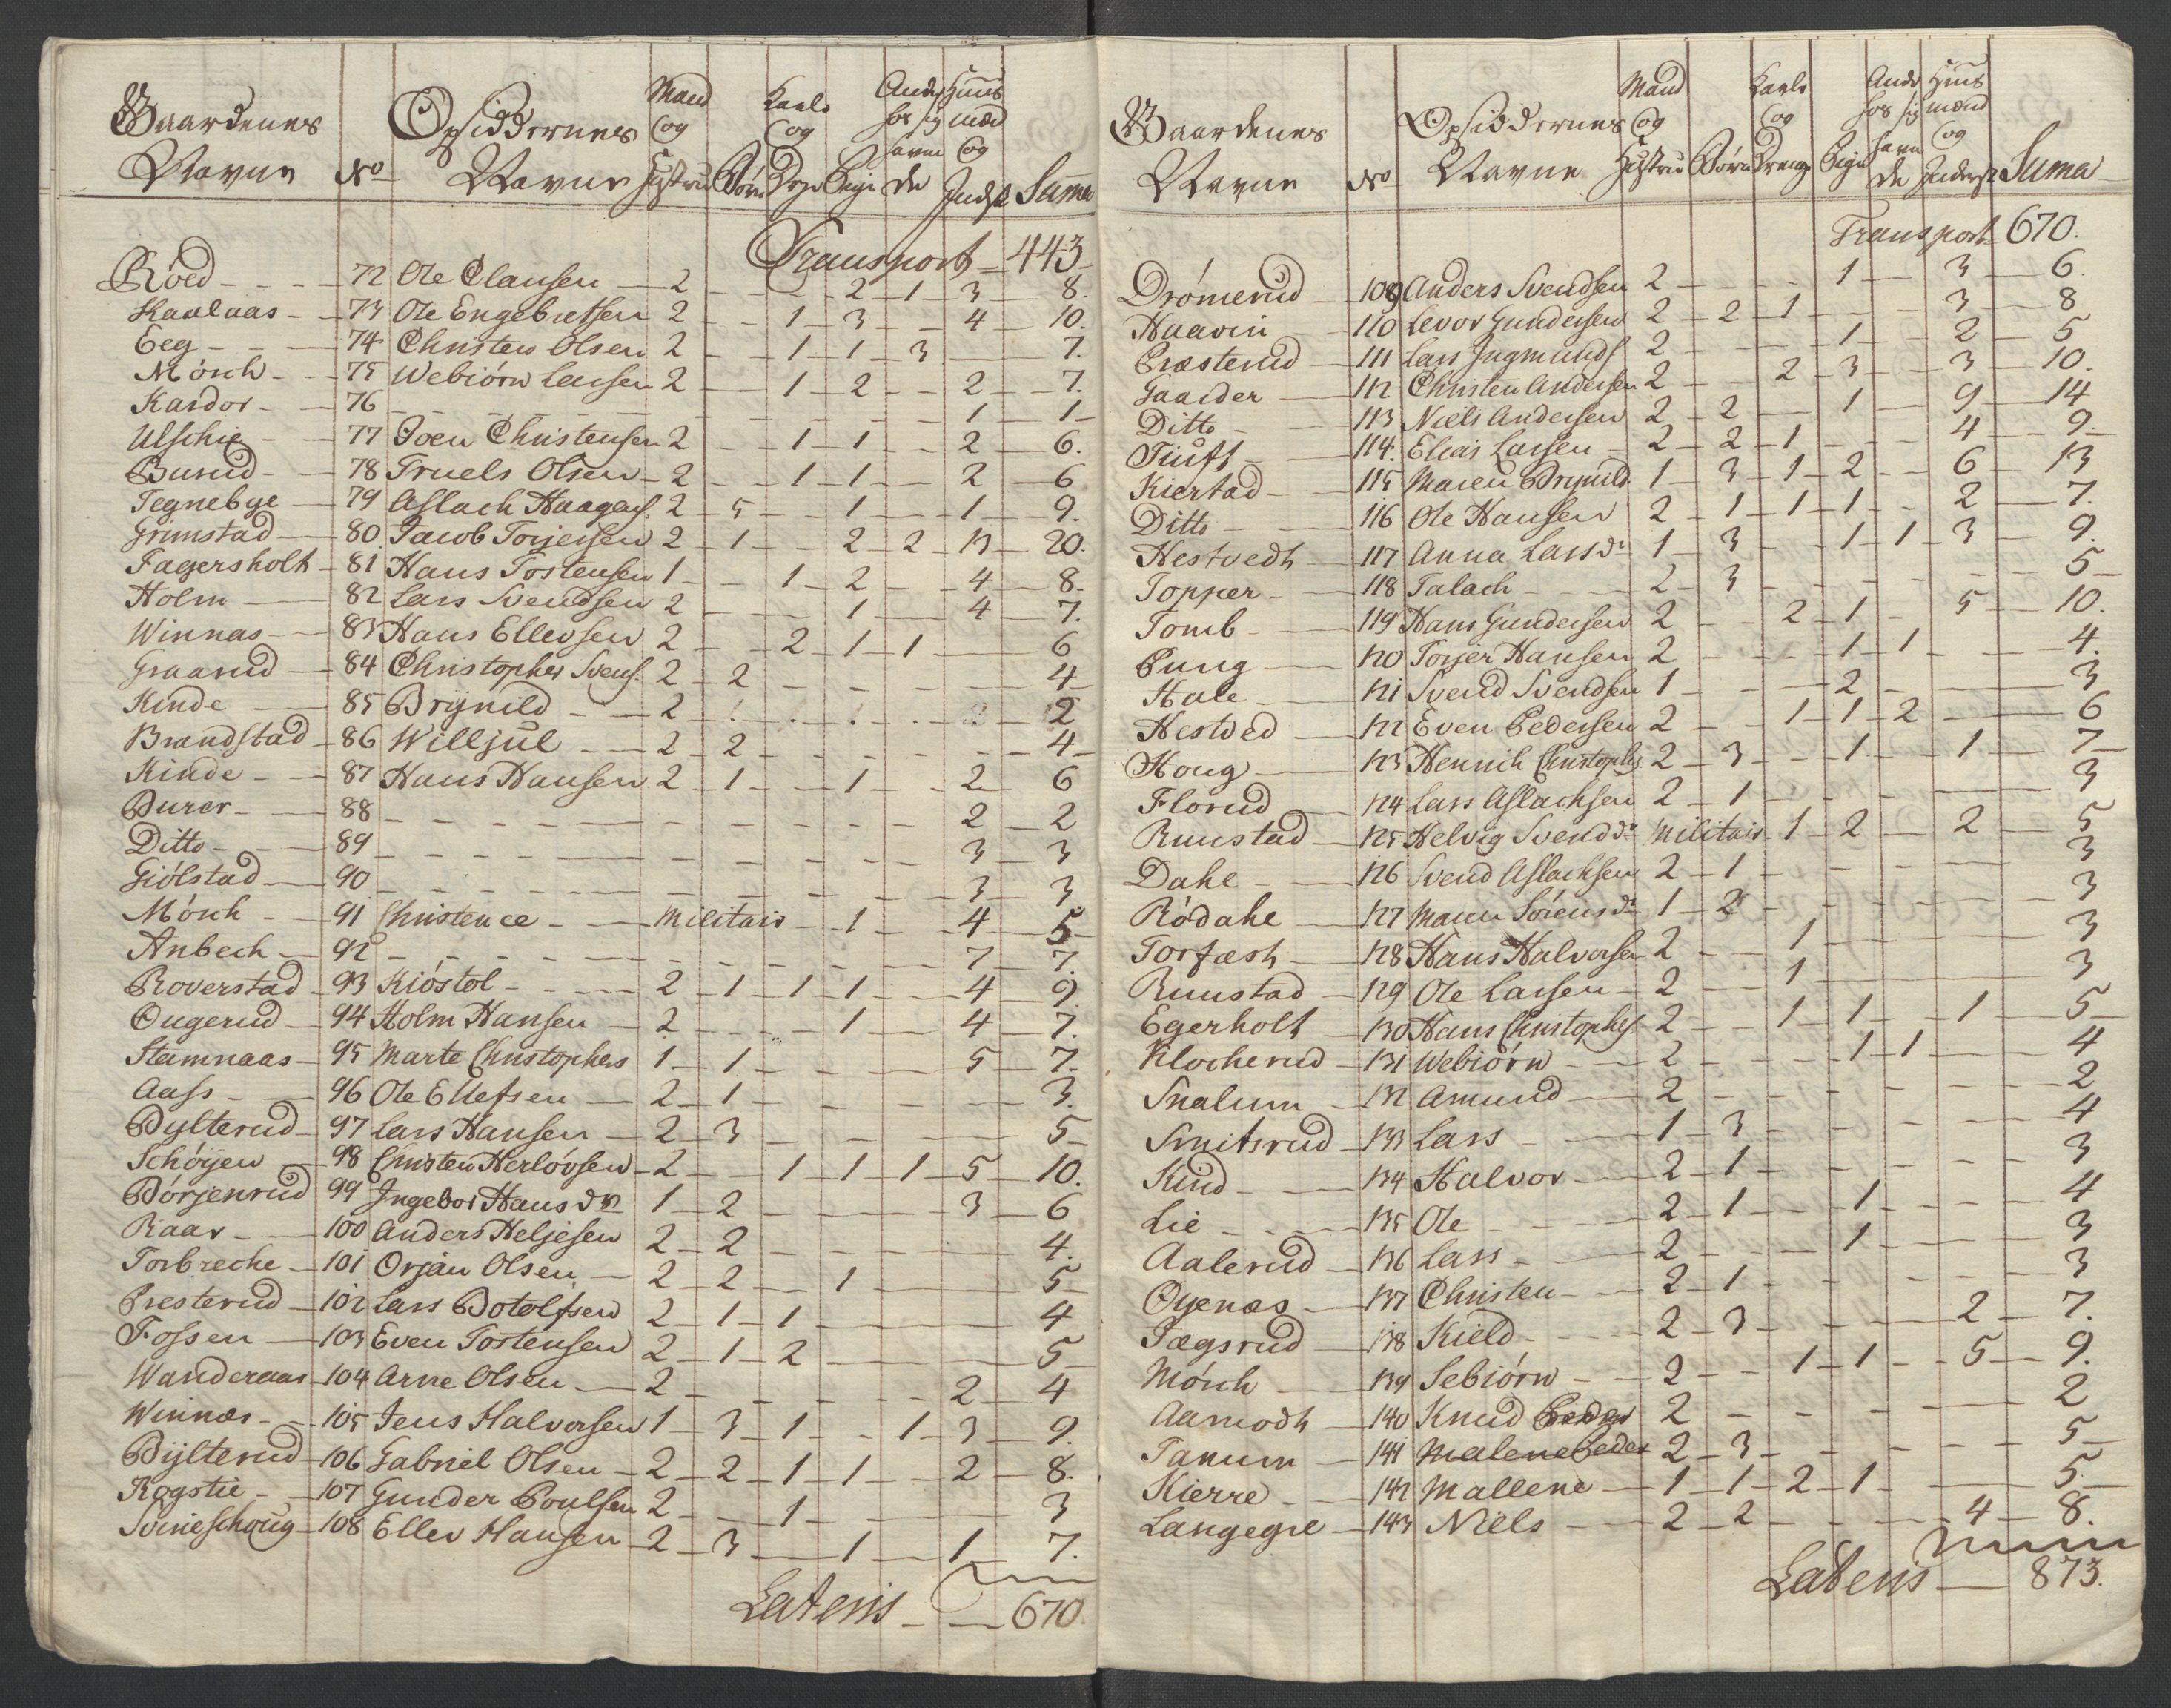 Gaardenes Navne No Opsiddernes Navne Mand og Hustru Børn Karle og Drge Pige Andre for sig sæmde Huusmænd og Inderst Suma
Transport 443
Röed 72 Ole Clausen 2 2 1 3 8.
Kaalaas 73 Ole Engebretsen 2 1 3 4 10.
Eeg 74 Christen Olsen 2 1 1 3 7.
Mörch 75 Webiörn Larsen 2 1 2 2 7.
Kardor 76 1 1
Ulschie 77 Joen Christensen 2 1 1 2 6.
Burud 78 Truels Olsen 2 1 1 2 6
Tegnebye 79 Aslach Haagens. 2 5 1 1 9.
Grimstad 80 Jacob Torjersen 2 1 2 2 13 20.
Fagersholt 81 Hans Tostensen 1 1 2 4 8.
Holm 82 Lars Svendsen 2 1 4 7.
Winnas 83 Hans Ellevsen 2 2 1 1 6
Graarud 84 Christopher Svens. 2 2 4
Kinde 85 Brÿnild 2 2
Brandstad 86 Willjul 2 2 4
Kinde 87 Hans Hansen 2 1 1 2 6
Burer 88 2 2
Ditto 89 3 3
Giölstad 90 3 3
Mörch 91 Christence Militair 1 4 5
Anbech 92 7 7.
Roverstad 93 Kiöstol 2 1 1 1 4 9.
Ougerud 94 Holm Hansen 2 1 4 7.
Stamnaas 95 Marte Christophers 1 1 5 7.
Aass 96 Ole Ellefsen 2 1 3.
Bylterud 97 Lars Hansen 2 3 5
Schöyen 98 Christen Herlövsen 2 1 1 1 5 10.
Börjenrud 99 Ingebor Hans dr 1 2 3 6
Raar 100 Anders Heljesen 2 2 4.
Torbreche 101 Orjan Olsen 2 2 1 5
Presterud 102 Lars Botolfsen 2 1 1 4
Fossen 103 Even Tostensen 2 1 2 5
Wanderaas 104 Arne Olsen 2 2 4
Winnæs 105 Jens Halvorsen 1 3 1 1 3 9.
Bÿlterud 106 Gabriel Olsen 2 2 1 1 2 8.
Rogstie 107 Gunder Poulsen 2 1 3
Svineschoug 108 Ellev Hansen 2 3 1 1 7.
Lateris 670.
Gaardenes Navne No Opsiddernes Navne Mand og Hustru Børn Karle og Drenge Pige Andre for sig sæmde Huusmænd og Inderst Suma
Transport 670.
Drömerud 109 Anders Svendsen 2 1 3 6.
Haavin 110 Levor Gundersen 2 2 1 3 8
Præsterud 111 Lars Ingmunds 2 1 2 5
Gaarder 112 Christen Andersen 2 2 3 3 10.
Ditto 113 Niels Andersen 2 2 1 9 14
Tuuft 114. Elias Larsen 2 2 1 4 9.
Kiertad 115 Maren Brynild. 1 3 1 2 6 13
Ditto 116 Ole Hansen 2 1 1 1 2 7.
Hestvedt 117 Anna Lars dr 1 3 1 1 3 9.
Topper 118 Talach 2 3 5
Tomb 119 Hans Gundersen 2 2 1 5 10.
Pung 120 Torjer Hansen 2 1 1 4.
Hale 121 Svend Svendsen 1 2 3
Hestved 122 Even Pedersen 2 1 1 2 6
Houg 123 Henrich Christophs 2 3 1 1 7
Florud 124 Lars Aslachsen 2 1 3
Ruustad 125 Helvig Svend dr Militair 1 2 2 5
Dahe 126 Svend Aslachsen 2 1 3
Rödahe 127 Maren Sörens dr 1 2 3
Torfæst 128 Hans Halvorsen 2 1 3
Ruustad 129 Ole Larsen 2 1 3
Egerholt 130 Hans Christophes. 2 1 1 1 5
Klocherud 131 Webiörn 2 1 1 4
Snalum 132 Amund 2 2
Smitsrud 133 Lars 1 3 4
Kind 134 Halvor 2 1 3
Lie 135 Ole 2 1 1 4
Aalerud 136 Lars 2 1 3
Oyenæs 137 Christen 2 1 3
Tægsrud 138 Kield 2 3 2 7.
Mörch 139 Sebiörn 2 1 1 5 9.
Aamodt 140 Knud 2 2
Tanum 141 Malene Peders 2 3 5
Kierre 142 Mallene 1 1 2 1 5
Langegre 143 Niels 2 2 4 8.
Lateris 873.